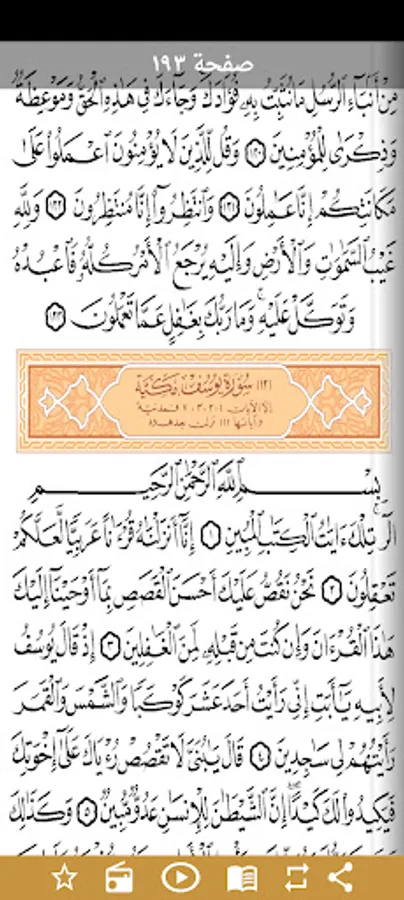 صفحة ١٩٣
مِنْ أَنۢبَآءِ ٱلرُّسُلِ مَا نُثَبِّتُ بِهِۦ فُؤَادَكَ وَجَآءَكَ فِى هَٰذِهِ ٱلْحَقُّ وَمَوْعِظَةٌ
وَذِكْرَىٰ لِلْمُؤْمِنِينَ ١٢٠ وَقُل لِّلَّذِينَ لَا يُؤْمِنُونَ ٱعْمَلُوا۟ عَلَىٰ
مَكَانَتِكُمْ إِنَّا عَٰمِلُونَ ١٢١ وَٱنتَظِرُوٓا۟ إِنَّا مُنتَظِرُونَ ١٢٢ وَلِلَّهِ
غَيْبُ ٱلسَّمَٰوَٰتِ وَٱلْأَرْضِ وَإِلَيْهِ يُرْجَعُ ٱلْأَمْرُ كُلُّهُۥ فَٱعْبُدْهُ
وَتَوَكَّلْ عَلَيْهِ وَمَا رَبُّكَ بِغَٰفِلٍ عَمَّا تَعْمَلُونَ ١٢٣
(١٢) سُورَةُ يُوسُفَ مَكِّيَّة
إلا الآيات ١ و ٢ و ٣ و ٧ فمدنية
وآياتها ١١١ نزلت بعد هود
بِسْمِ ٱللَّهِ ٱلرَّحْمَٰنِ ٱلرَّحِيمِ
الٓر تِلْكَ ءَايَٰتُ ٱلْكِتَٰبِ ٱلْمُبِينِ ١ إِنَّآ أَنزَلْنَٰهُ قُرْءَٰنًا عَرَبِيًّا لَّعَلَّكُمْ
تَعْقِلُونَ ٢ نَحْنُ نَقُصُّ عَلَيْكَ أَحْسَنَ ٱلْقَصَصِ بِمَآ أَوْحَيْنَآ إِلَيْكَ
هَٰذَا ٱلْقُرْءَانَ وَإِن كُنتَ مِن قَبْلِهِۦ لَمِنَ ٱلْغَٰفِلِينَ ٣ إِذْ قَالَ يُوسُفُ
لِأَبِيهِ يَٰٓأَبَتِ إِنِّى رَأَيْتُ أَحَدَ عَشَرَ كَوْكَبًا وَٱلشَّمْسَ وَٱلْقَمَرَ
رَأَيْتُهُمْ لِى سَٰجِدِينَ ٤ قَالَ يَٰبُنَىَّ لَا تَقْصُصْ رُءْيَاكَ عَلَىٰٓ إِخْوَتِكَ
فَيَكِيدُوا۟ لَكَ كَيْدًا إِنَّ ٱلشَّيْطَٰنَ لِلْإِنسَٰنِ عَدُوٌّ مُّبِينٌ ٥ وَكَذَٰلِكَ